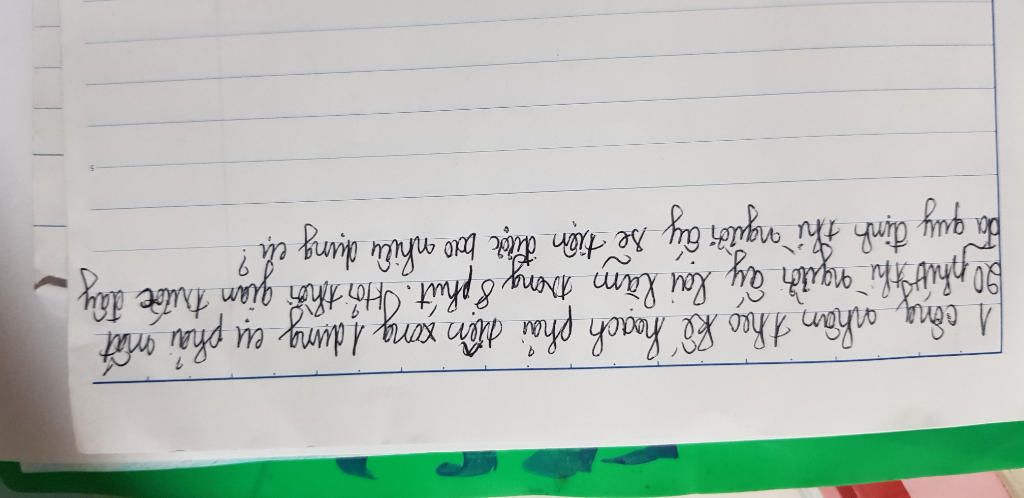 1 công nhân theo kế hoạch phải tiện xong 1 dụng cụ phải mất
20 phút thì người ấy lại làm trong 8 phút. Hỏi thời gian trước đây
đã quy định thì người ấy sẽ tiện được bao nhiêu dụng cụ?